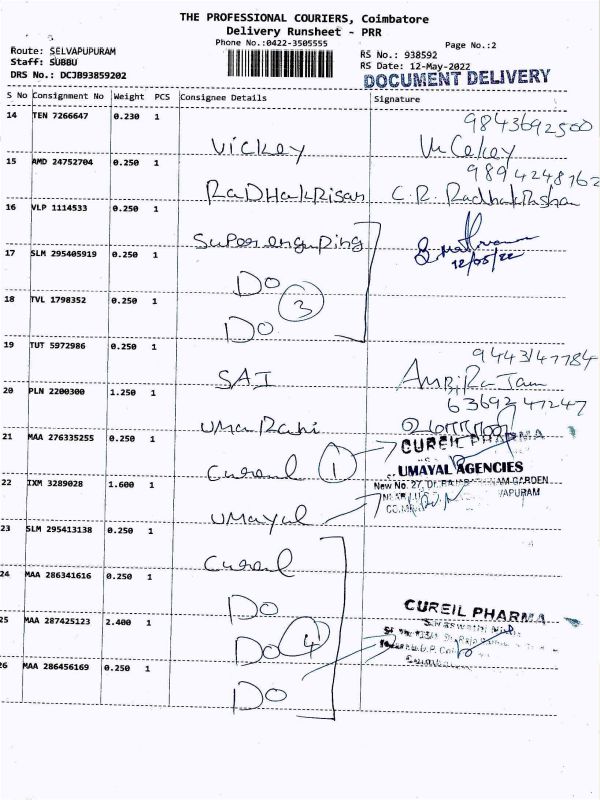 THE PROFESSIONAL COURIERS, Coimbatore
Delivery Runsheet - PRR
Phone No.:0422-3505555
Page No.:2
Route: SELVAPUPURAM
Staff: SUBBU
DRS No.: DCJB93859202
RS No.: 938592
RS Date: 12-May-2022
DOCUMENT DELIVERY
S No Consignment No Weight PCS Consignee Details Signature
14 TEN 7266647 0.230 1
9843692500
Vickey
15 AMD 24752704 0.250 1
9894248162
RaDHakRisan C.R. Radhakrishan
16 VLP 1114533 0.250 1
17 SLM 295405919 0.250 1
12/05/22
Do
3
18 TVL 1798352 0.250 1
Do
19 TUT 5972986 0.250 1
9443147784
SAI
20 PLN 2200300 1.250 1
6369247247
UmaRani
21 MAA 276335255 0.250 1
CUREIL PHARMA
1
UMAYAL AGENCIES
22 IXM 3289028 1.600 1
New No. 27, GARDEN
VAPURAM
Umayal
23 SLM 295413138 0.250 1
24 MAA 286341616 0.250 1
Do
CUREIL PHARMA
25 MAA 287425123 2.400 1
Do
4
26 MAA 286456169 0.250 1
Do